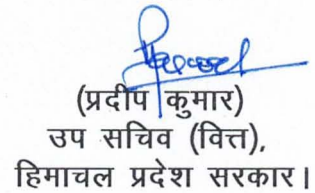 (प्रदीप कुमार)
उप सचिव (वित्त),
हिमाचल प्रदेश सरकार।